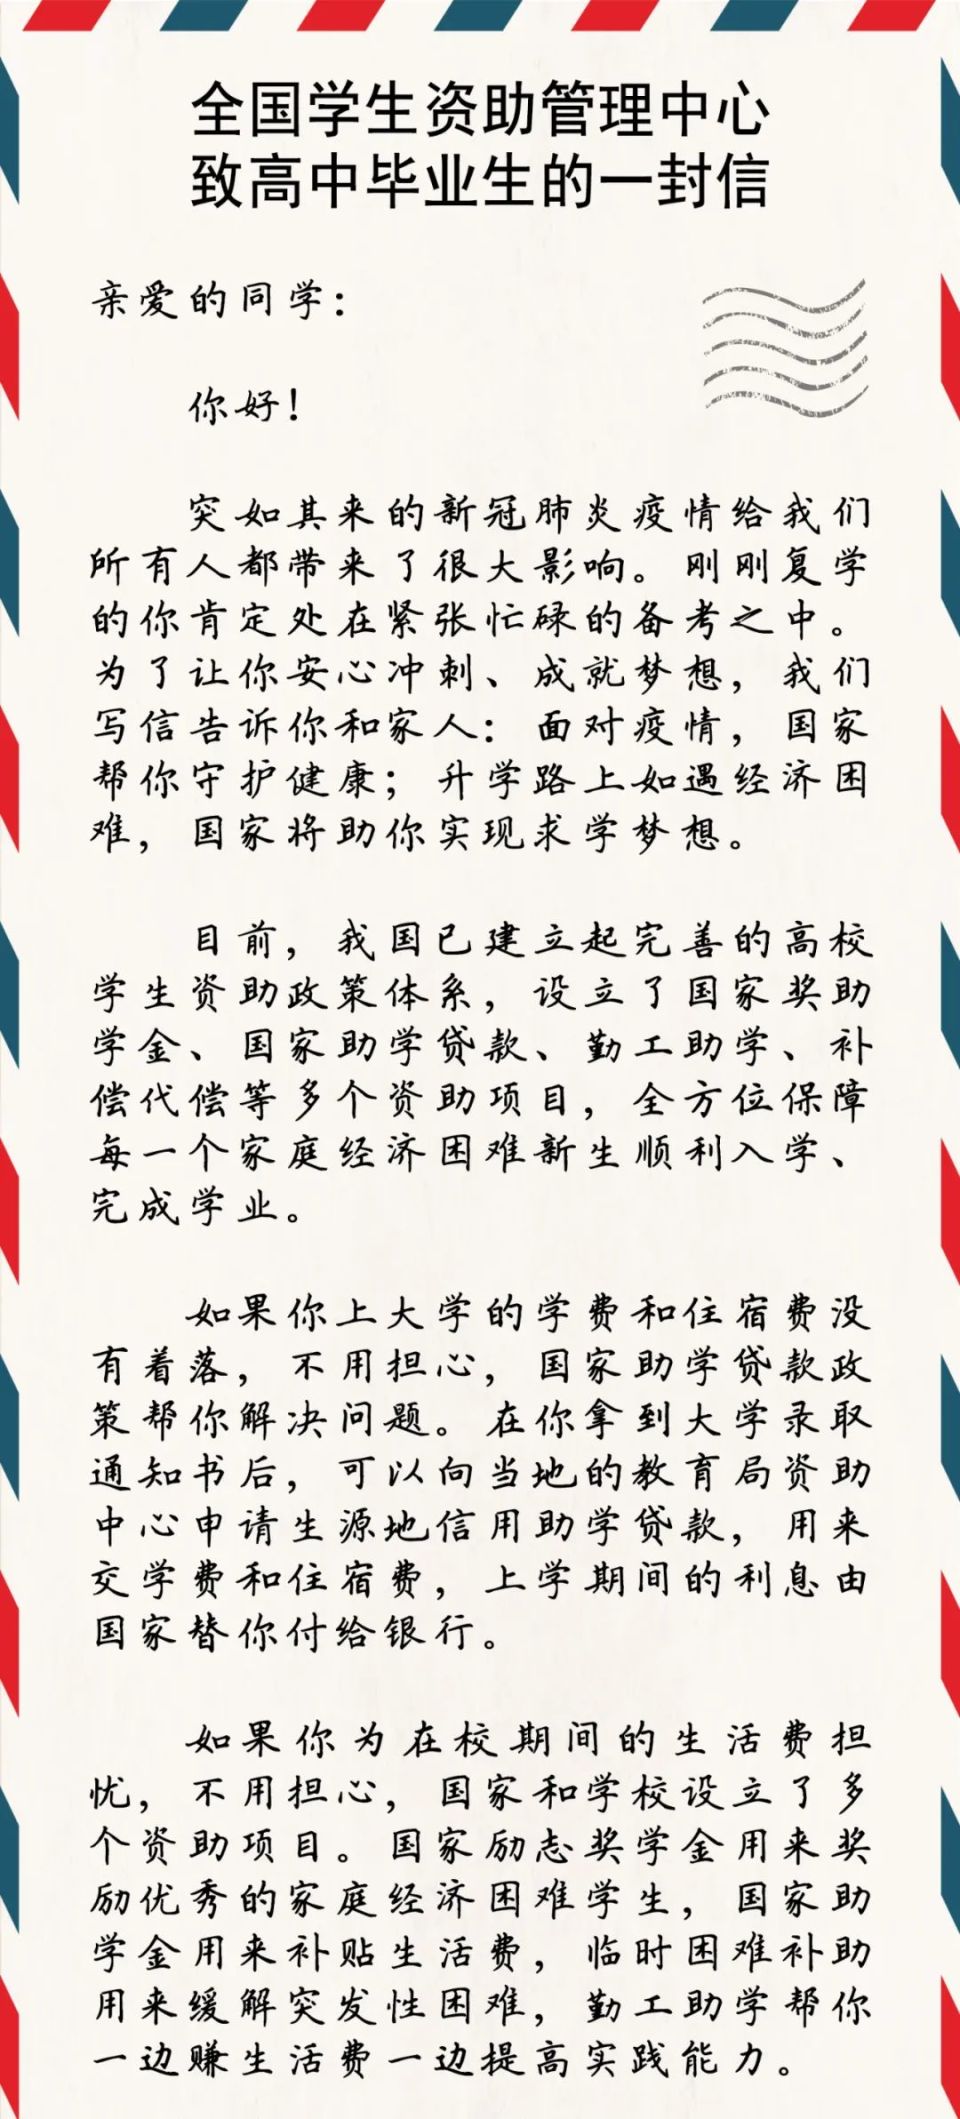 全国学生资助管理中心
致高中毕业生的一封信
亲爱的同学：
你好！
突如其来的新冠肺炎疫情给我们
所有人都带来了很大影响。刚刚复学
的你肯定处在紧张忙碌的备考之中。
为了让你安心冲刺、成就梦想，我们
写信告诉你和家人：面对疫情，国家
帮你守护健康；升学路上如遇经济困
难，国家将助你实现求学梦想。
目前，我国已建立起完善的高校
学生资助政策体系，设立了国家奖助
学金、国家助学贷款、勤工助学、补
偿代偿等多个资助项目，全方位保障
每一个家庭经济困难新生顺利入学、
完成学业。
如果你上大学的学费和住宿费没
有着落，不用担心，国家助学贷款政
策帮你解决问题。在你拿到大学录取
通知书后，可以向当地的教育局资助
中心申请生源地信用助学贷款，用来
交学费和住宿费，上学期间的利息由
国家替你付给银行。
如果你为在校期间的生活费担
忧，不用担心，国家和学校设立了多
个资助项目。国家励志奖学金用来奖
励优秀的家庭经济困难学生，国家助
学金用来补贴生活费，临时困难补助
用来缓解突发性困难，勤工助学帮你
一边赚生活费一边提高实践能力。